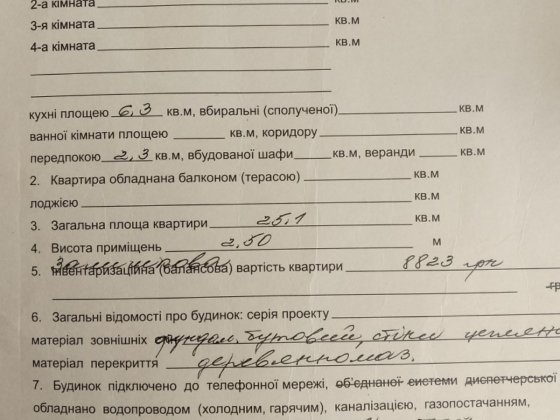 2-а кімната кв.м
3-я кімната кв.м
4-а кімната кв.м
кухні площею 6,3 кв.м, вбиральні (сполученої) кв.м
ванної кімнати площею кв.м, коридору кв.м
передпокою 2,3 кв.м, вбудованої шафи кв.м, веранди кв.м
2. Квартира обладнана балконом (терасою) кв.м
лоджією кв.м
3. Загальна площа квартири 25,1 кв.м
4. Висота приміщень 2,50 м
Залишкова
5. Інвентаризаційна (балансова) вартість квартири 8823 грн
6. Загальні відомості про будинок: серія проекту
матеріал зовнішніх фундам. бутовий, стіни
матеріал перекриття деревянно маз.
7. Будинок підключено до телефонної мережі, об'єднаної системи диспетчерської
обладнано водопроводом (холодним, гарячим), каналізацією, газопостачанням,